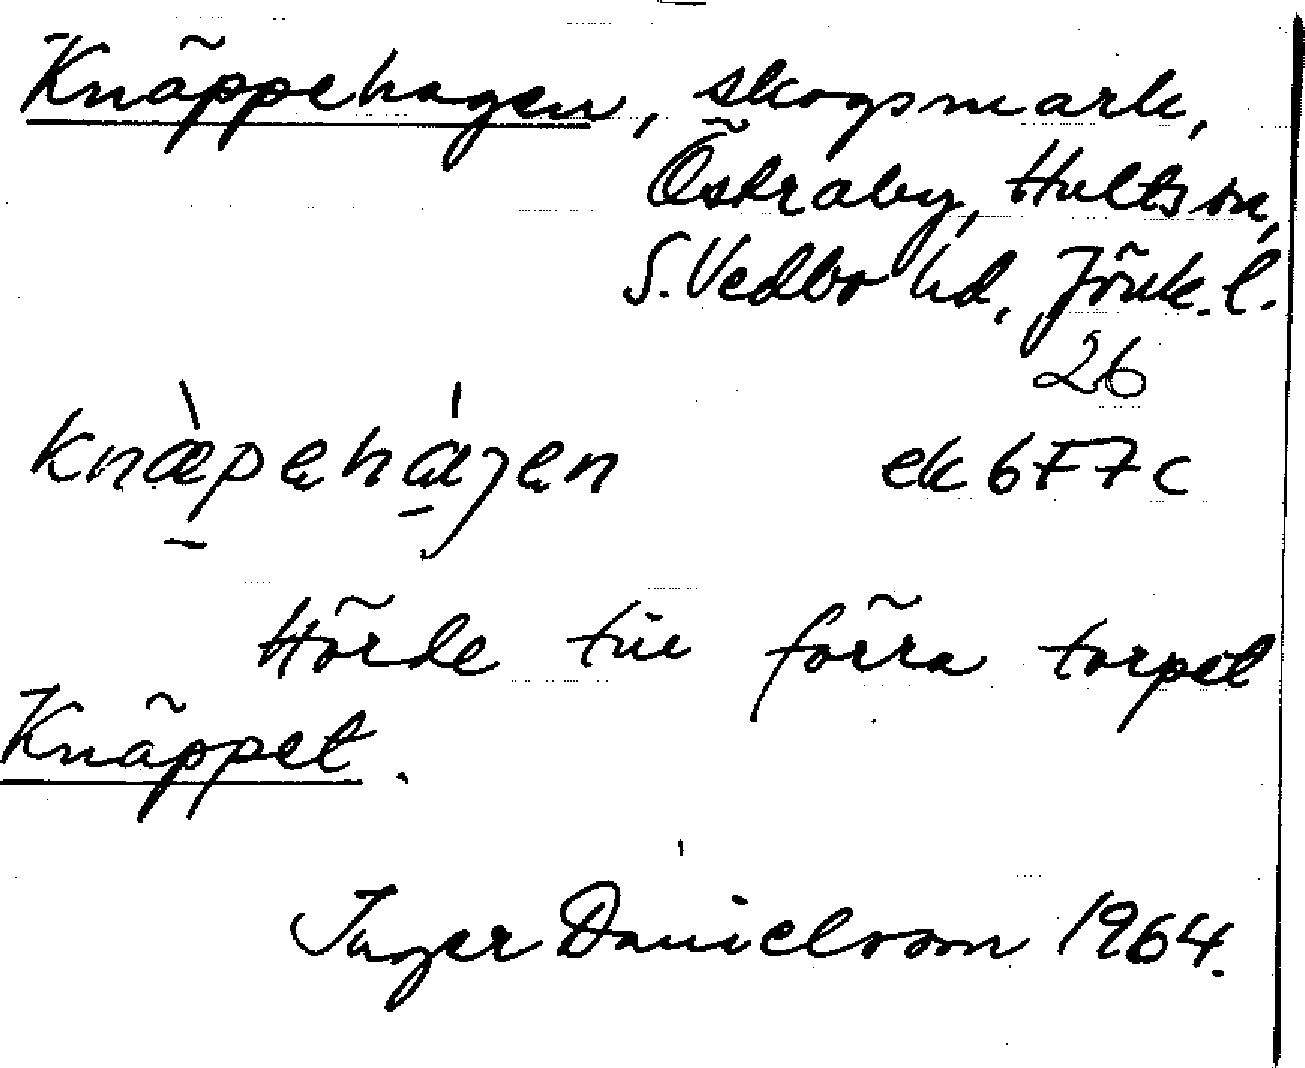 Knäppehagen, skogsmark,
Östraby, Hults sn,
S. Vedbo hd, Jönk. l.
26
knæ̀pehágen ek 6F7c
Hörde till förra torpet
Knäppet.
Inger Danielsson 1964.